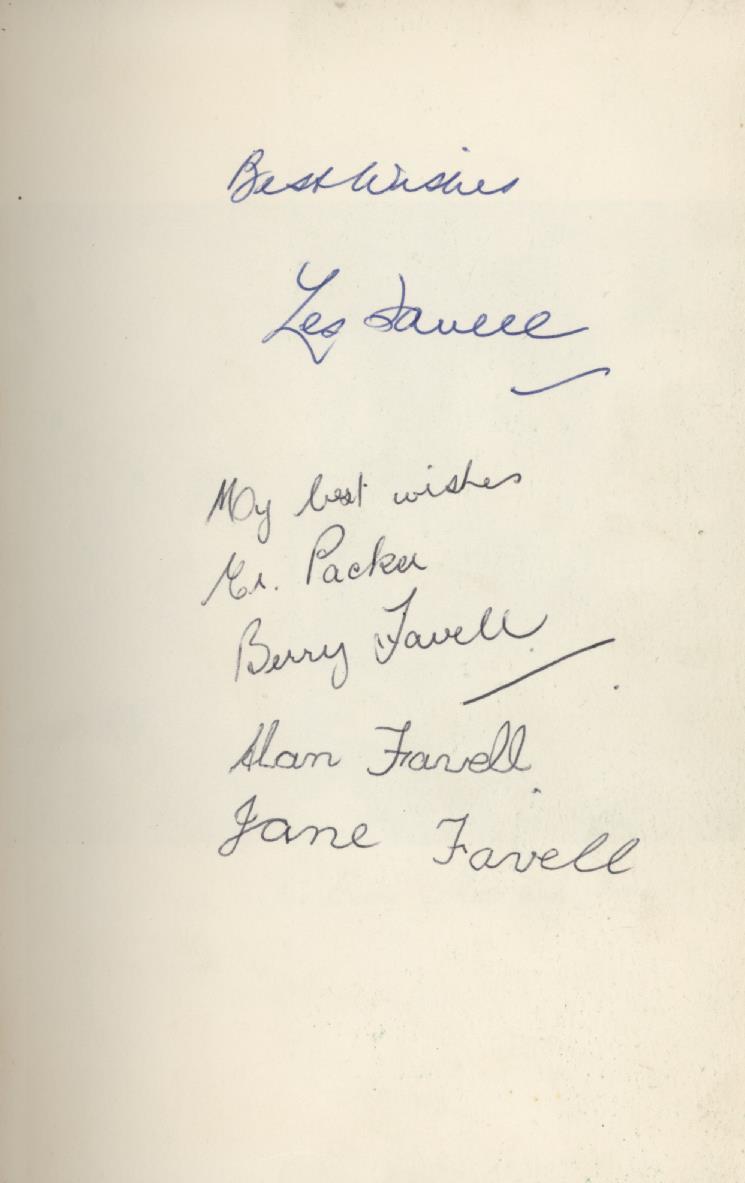 Best Wishes
Les Favell
My best wishes
Mr. Packer
Berry Favell
Alan Favell
Jane Favell